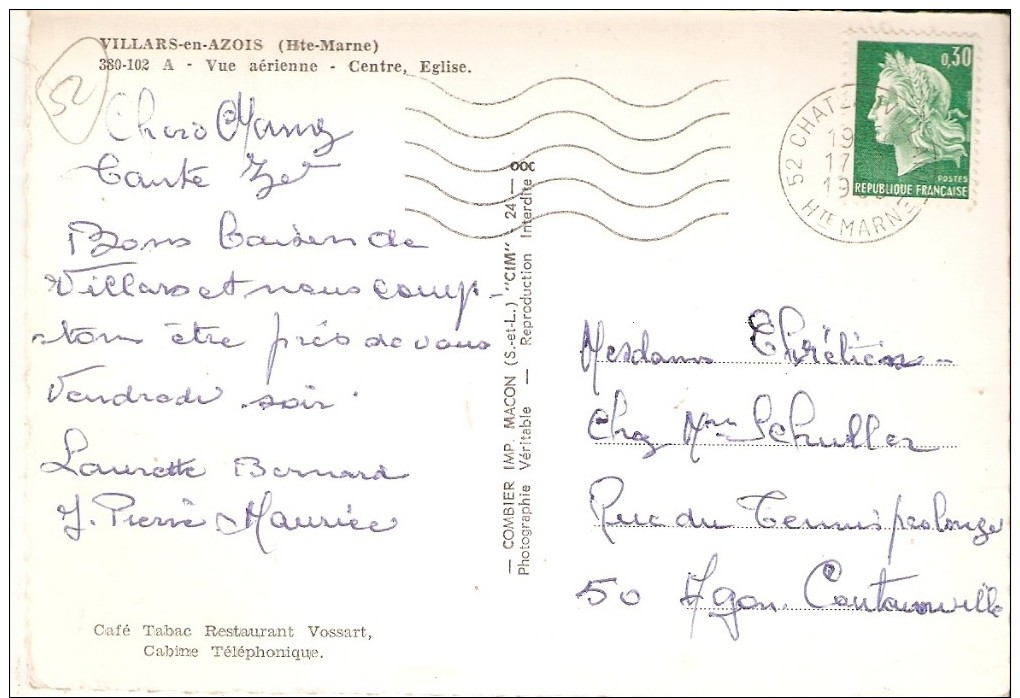 VILLARS-en-AZOIS (Hte-Marne)
380-102 A - Vue aérienne - Centre, Eglise.
52
Tante Zet
Bons baisers de
Villars et nous comp-
tons être près de vous
Vendredi soir.
Laurette Bernard
J. Pierre Maurice
Café Tabac Restaurant Vossart,
Cabine Téléphonique.
— COMBIER IMP. MACON (S.-et-L.) "CIM" — 24 —
Photographie Véritable — Reproduction Interdite
0,30
POSTES
REPUBLIQUE FRANÇAISE
52 CHATE
17
HTE MARNE
Mesdames Chrétien
Chez Mme Schuller
Rue du Tennis prolongé
50 Agon Coutainville